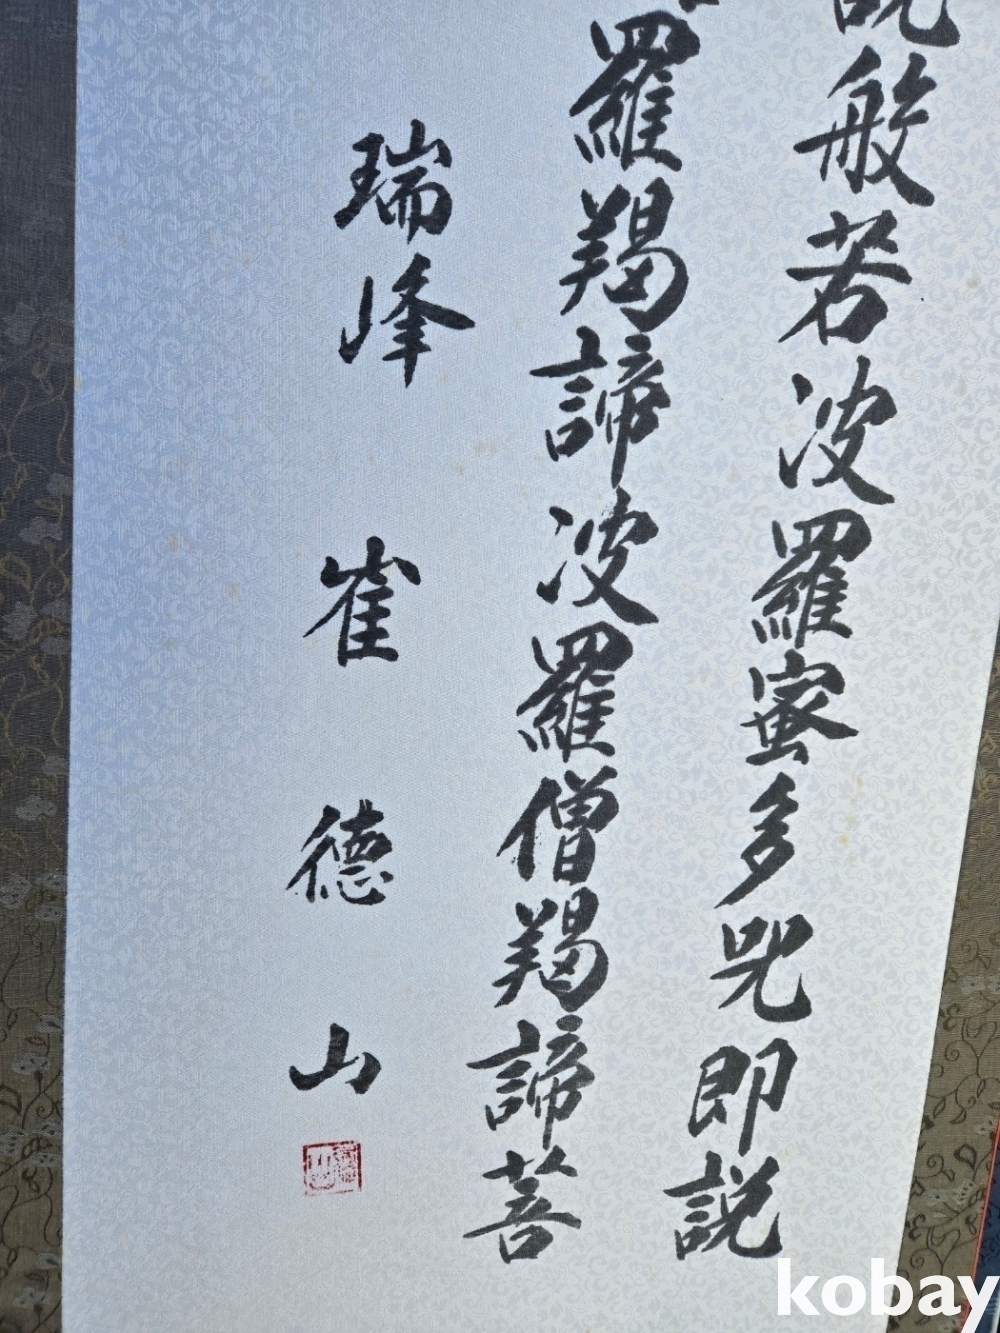 説般若波羅蜜多咒即説
羅羯諦波羅僧羯諦菩
瑞峰 崔德山
kobay